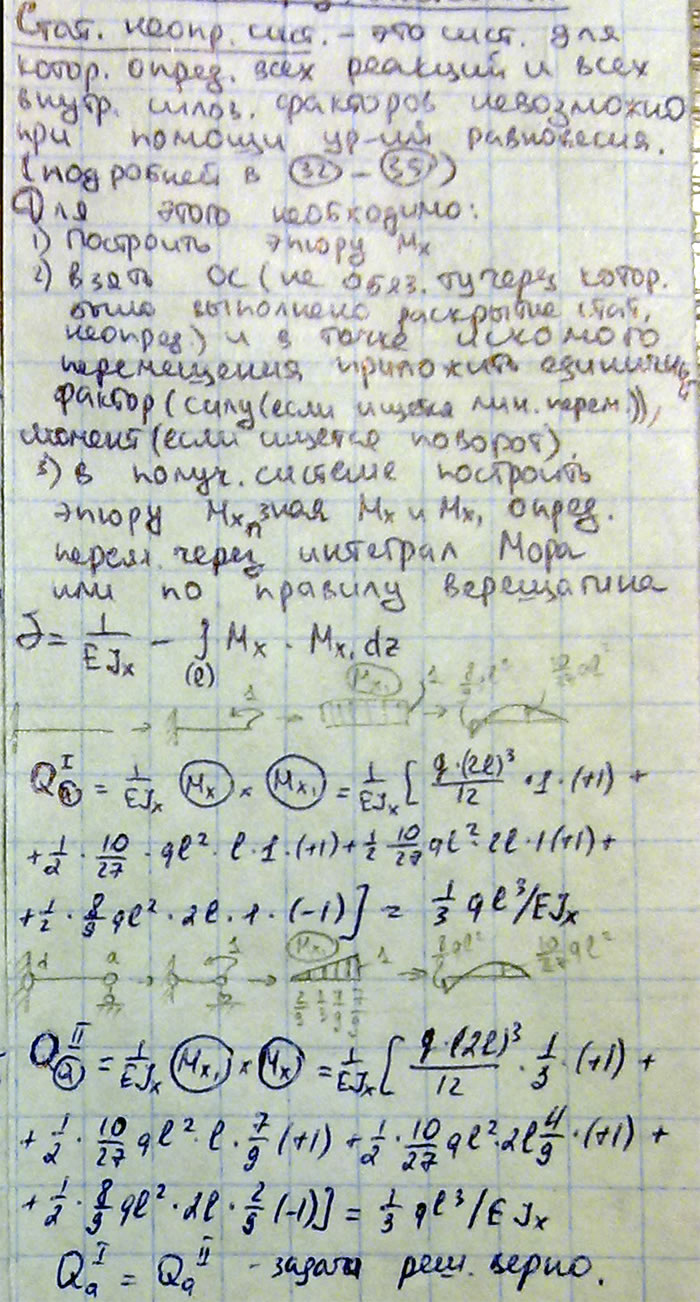 Стат. неопр. сист. - это сист. для
котор. опред. всех реакций и всех
внутр. силов. факторов невозможно
при помощи ур-ий равновесия.
(подробней в 32 - 35)
Для этого необходимо:
1) Построить эпюру Mx
2) взять ОС (не обяз. ту через котор.
было выполнено раскрытие стат.
неопред.) и в точке искомого
перемещения приложить единичный
фактор (силу (если ищется лин. перем.)),
момент (если ищется поворот).
3) в получ. системе построить
эпюру Mx₁, зная Mx и Mx₁ опред.
перем. через интеграл Мора
или по правилу верещагина
δ = 1/EJx - ∫(l) Mx · Mx₁ dz
1 Mx₁ 1 8/9 ql² 10/27 ql²
Q^I_a = 1/EJx (Mx) × (Mx₁) = 1/EJx [ q·(2l)³/12 · 1 · (+1) +
+ 1/2 · 10/27 · ql² · l · 1 · (+1) + 1/2 · 10/27 ql² · 2l · 1 (+1) +
+ 1/2 · 8/9 ql² · 2l · 1 · (-1) ] = 1/3 ql³/EJx
d a 1 Mx₁ 1 8/9 ql² 10/27 ql²
Q^II_a = 1/EJx (Mx₁) × (Mx) = 1/EJx [ q·(2l)³/12 · 1/3 · (+1) +
+ 1/2 · 10/27 ql² · l · 7/9 (+1) + 1/2 · 10/27 ql² · 2l 4/9 · (+1) +
+ 1/2 · 8/9 ql² · 2l · 2/9 (-1) ] = 1/3 ql³/EJx
Q^I_a = Q^II_a - задача реш. верно.